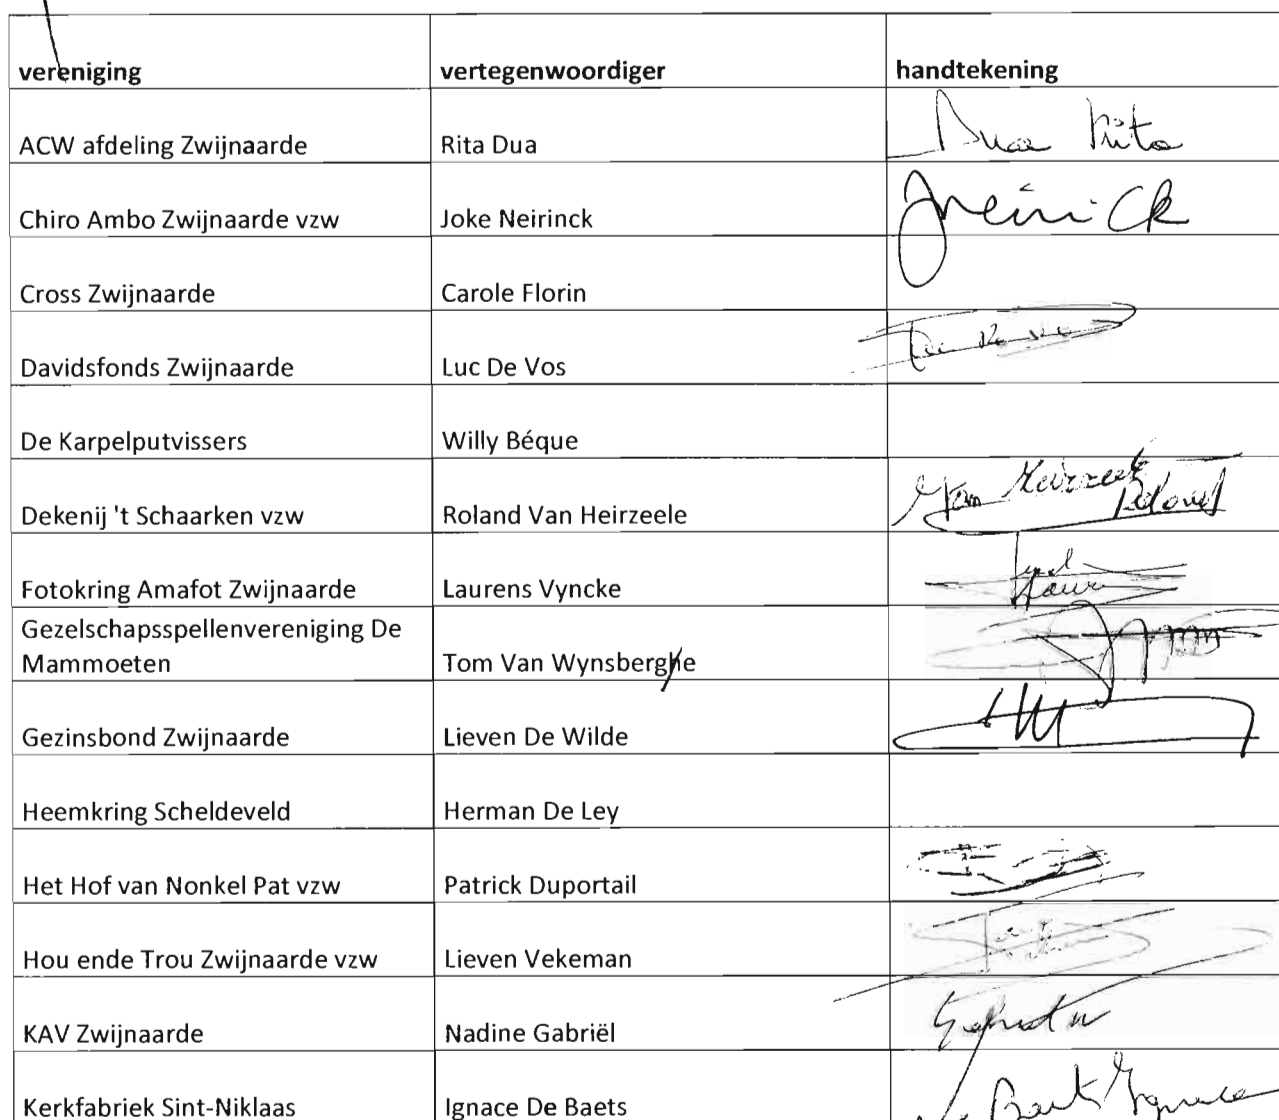 vereniging vertegenwoordiger handtekening
ACW afdeling Zwijnaarde Rita Dua Dua Rita
Chiro Ambo Zwijnaarde vzw Joke Neirinck Neirinck
Cross Zwijnaarde Carole Florin
Davidsfonds Zwijnaarde Luc De Vos
De Karpelputvissers Willy Béque
Dekenij 't Schaarken vzw Roland Van Heirzeele Van Heirzeele Roland
Fotokring Amafot Zwijnaarde Laurens Vyncke
Gezelschapsspellenvereniging De
Mammoeten Tom Van Wynsberghe
Gezinsbond Zwijnaarde Lieven De Wilde
Heemkring Scheldeveld Herman De Ley
Het Hof van Nonkel Pat vzw Patrick Duportail
Hou ende Trou Zwijnaarde vzw Lieven Vekeman
KAV Zwijnaarde Nadine Gabriël
Kerkfabriek Sint-Niklaas Ignace De Baets De Baets Ignace